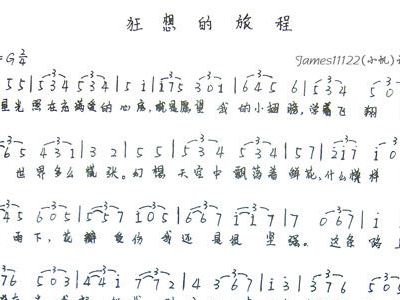 狂想的旅程
=G 2/4
James11122(小机)
5 5 | 5 3 4 5 3 4 | 5 5 i | i 7 5 3 0 1 | 6 4 5 6 | 5 3 4 5 0
星光照在充满爱的心房,就是愿望 我的小翅膀,学着飞翔
6 5 4 3 1 | 3 2 | 5 5 | 5 3 4 5 3 4 | 5 5 7 | 2 i 7 i 0
世界多么慌张。幻想天空中飘荡着鲜花,什么模样
4 5 6 0 5 | 5 5 7 i 0 5 | 6 6 7 i 7 | 0 i 7 | 0 6 7 | i i
雨下,花瓣受伤 我还是很坚强。这条路上
7 6 5 0 3 | 4 4 i 7 7 2 | 4 3 6 7 | i 3 | 3 7 6 5 0